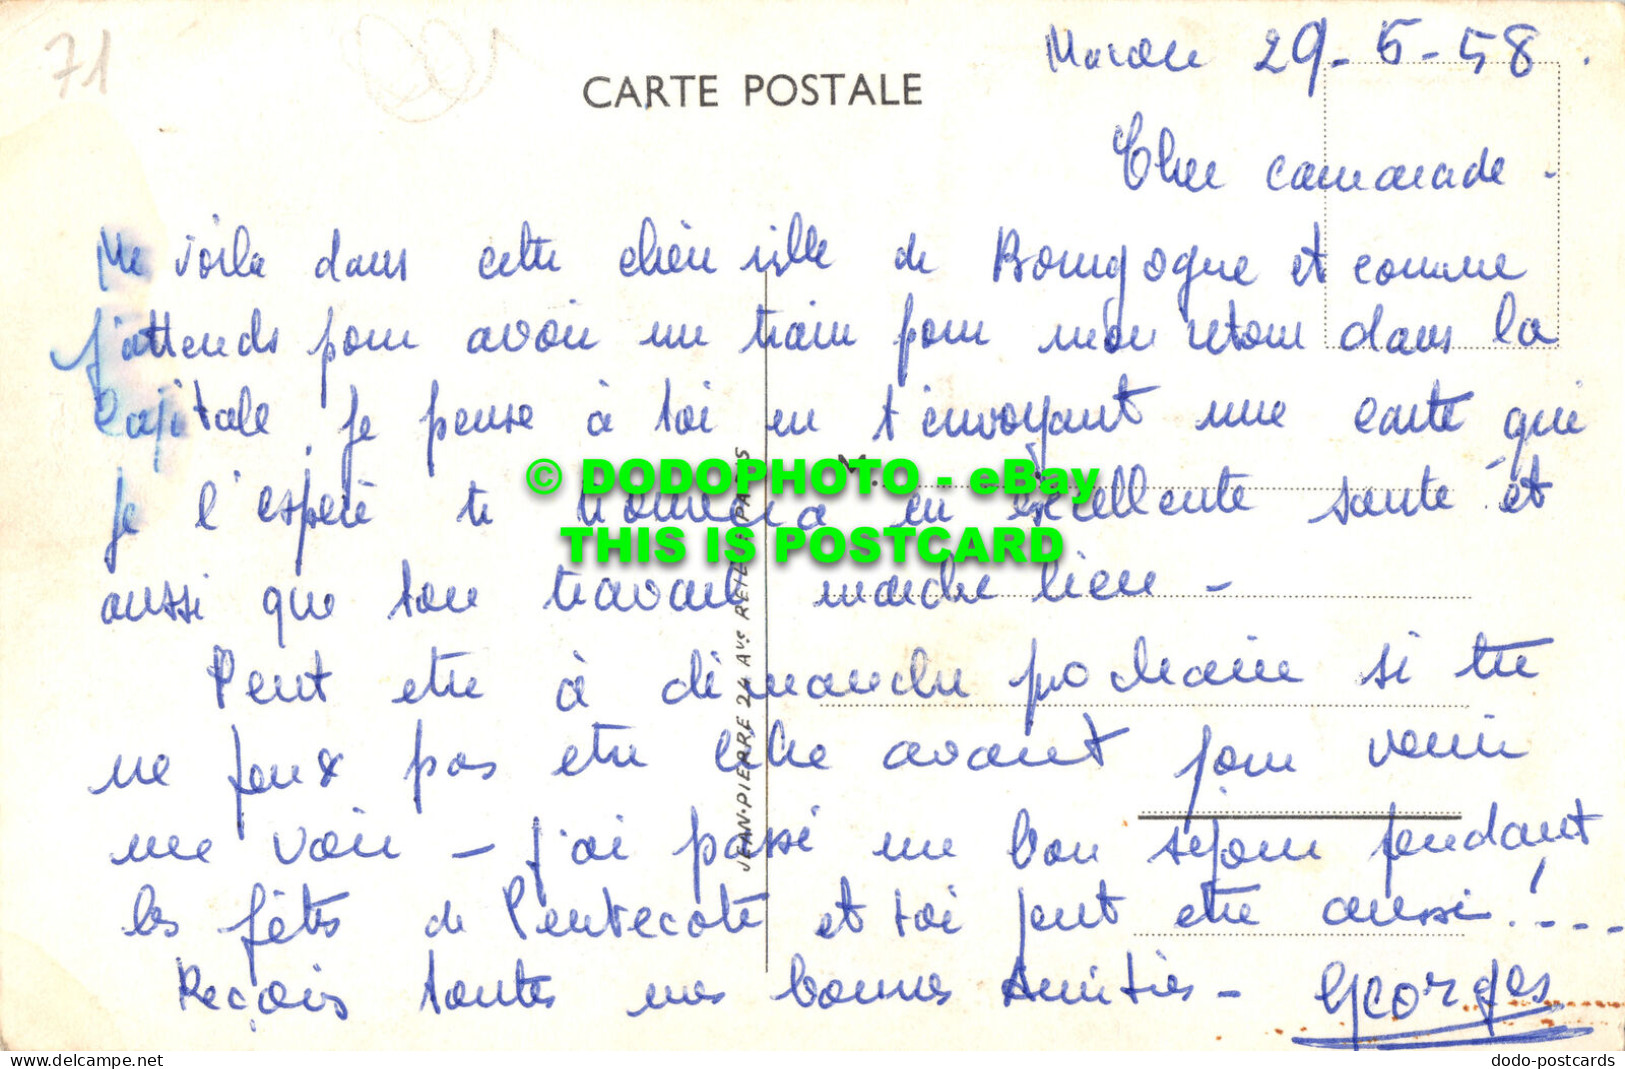 71
CARTE POSTALE
Macon 29-5-58.
Cher camarade.
Me voila dans cette chère ville de Bourgogne et comme
j'attends pour avoir un train pour mon retour dans la
Capitale, je pense à toi en t'envoyant une carte qui
je l'espère te trouvera en excellente santé et
aussi que ton travail marche bien -
Peut etre à dimanche prochain si tu
ne peux pas etre libre avant pour venir
me voir - J'ai passé un bon séjour pendant
les fêtes de Pentecote et toi peut etre aussi!....
Reçois toutes mes bonnes Amitiés - Georges
JEAN-PIERRE 24 Avs REILLE PARIS
© DODOPHOTO - eBay
THIS IS POSTCARD
dodo-postcards
delcampe.net